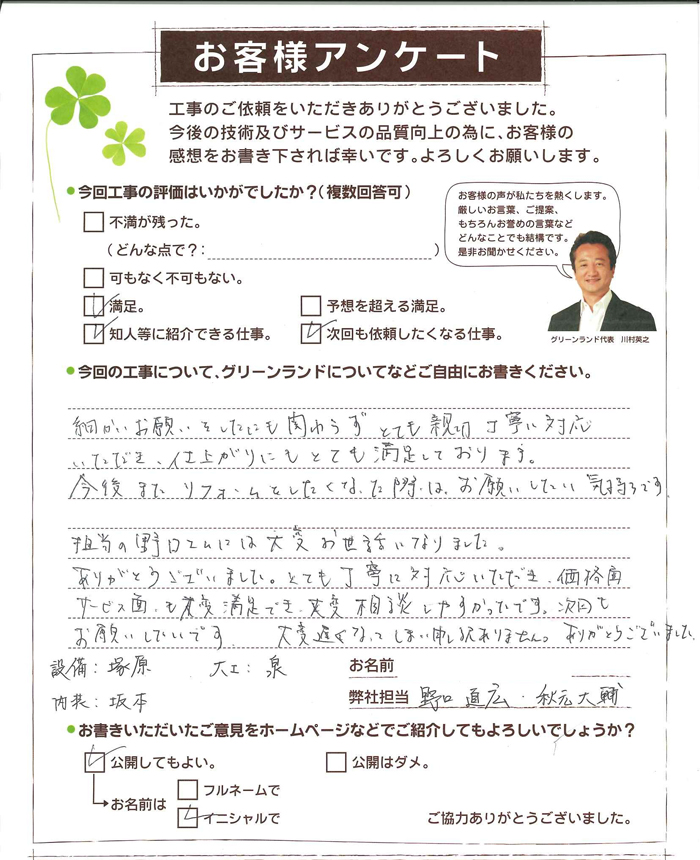 お客様アンケート
工事のご依頼をいただきありがとうございました。
今後の技術及びサービスの品質向上の為に、お客様の
感想をお書き下されば幸いです。よろしくお願いします。
今回工事の評価はいかがでしたか?(複数回答可)
不満が残った。
(どんな点で?: )
可もなく不可もない。
満足。
予想を超える満足。
知人等に紹介できる仕事。
次回も依頼したくなる仕事。
お客様の声が私たちを熱くします。
厳しいお言葉、ご提案、
もちろんお誉めの言葉など
どんなことでも結構です。
是非お聞かせください。
グリーンランド代表 川村英之
今回の工事について、グリーンランドについてなどご自由にお書きください。
細かいお願いをしたにも関わらず とても親切 丁寧に対応
いただき、仕上がりにもとても満足しております。
今後また リフォームをしたくなった際は、お願いしたい気持ちです
担当の野口さんには大変お世話になりました。
ありがとうございました。とても丁寧に対応いただき、価格面
サービス面も大変満足でき、大変相談しやすかったです。次回も
お願いしたいです 大変遅くなってしまい申し訳ありません。ありがとうございました
設備:塚原 大工:泉
内装:坂本
お名前
弊社担当 野口直広・秋元大輔
お書きいただいたご意見をホームページなどでご紹介してもよろしいでしょうか?
公開してもよい。
公開はダメ。
お名前は
フルネームで
イニシャルで
ご協力ありがとうございました。